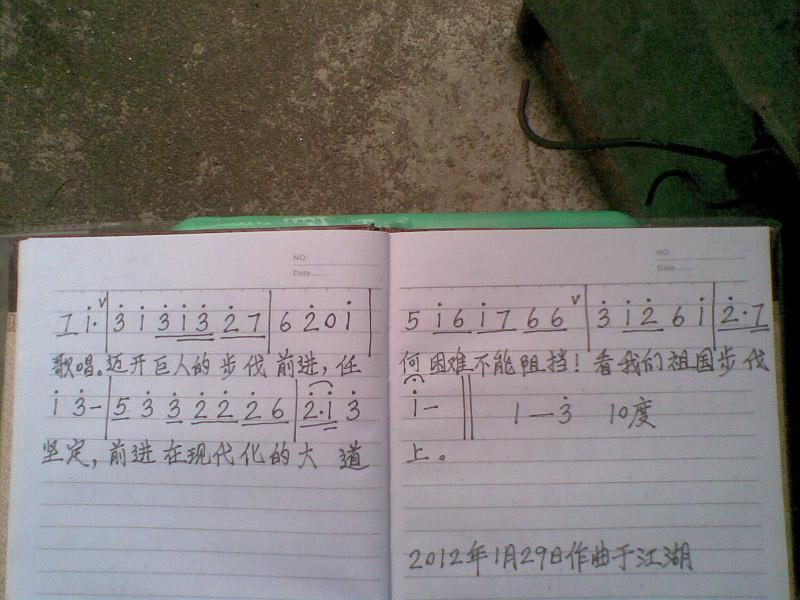 NO
Date......
7 i· | 3̇ i 3̇ i 3̇ 2̇ 7 | 6 2̇ 0 i |
歌唱。迈开巨人的步伐前进,任
i 3̇ – | 5 3̇ 3̇ 2̇ 2̇ 2̇ 6 | 2̇·i 3̇
坚定,前进在现代化的大 道
NO
Date......
5 i 6 i 7 6 6 ∨ | 3̇ i 2̇ 6 i | 2̇·7
何困难不能阻挡!看我们祖国步伐
i – ‖ 1 — 3̇ 10度
上。
2012年1月29日作曲于江湖